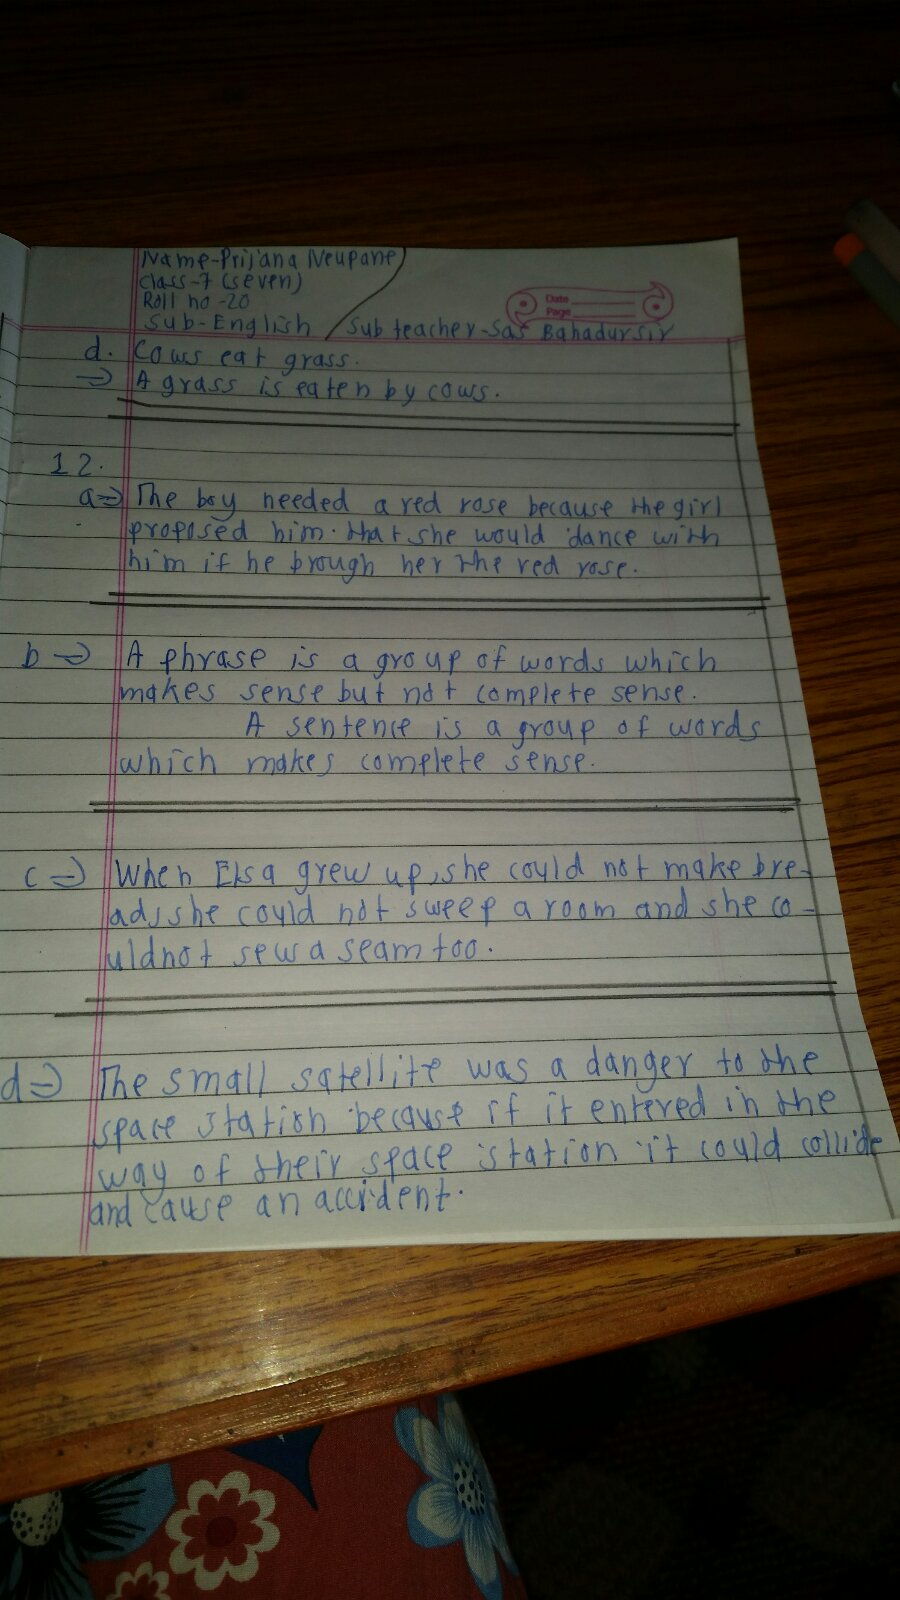 Name-Prijana Neupane
Class-7 (seven)
Roll no -20
Sub-English / Sub teacher-Sas Bahadur sir
Date
Page
d. Cows eat grass.
=> A grass is eaten by cows.
12.
a=> The boy needed a red rose because the girl
proposed him. that she would dance with
him if he brough her the red rose.
b => A phrase is a group of words which
makes sense but not complete sense.
A sentence is a group of words
which makes complete sense.
c => When Elsa grew up, she could not make bre-
ad, she could not sweep a room and she co-
uldnot sew a seam too.
d=> The small satellite was a danger to the
space station because if it entered in the
way of their space station it could collide
and cause an accident.